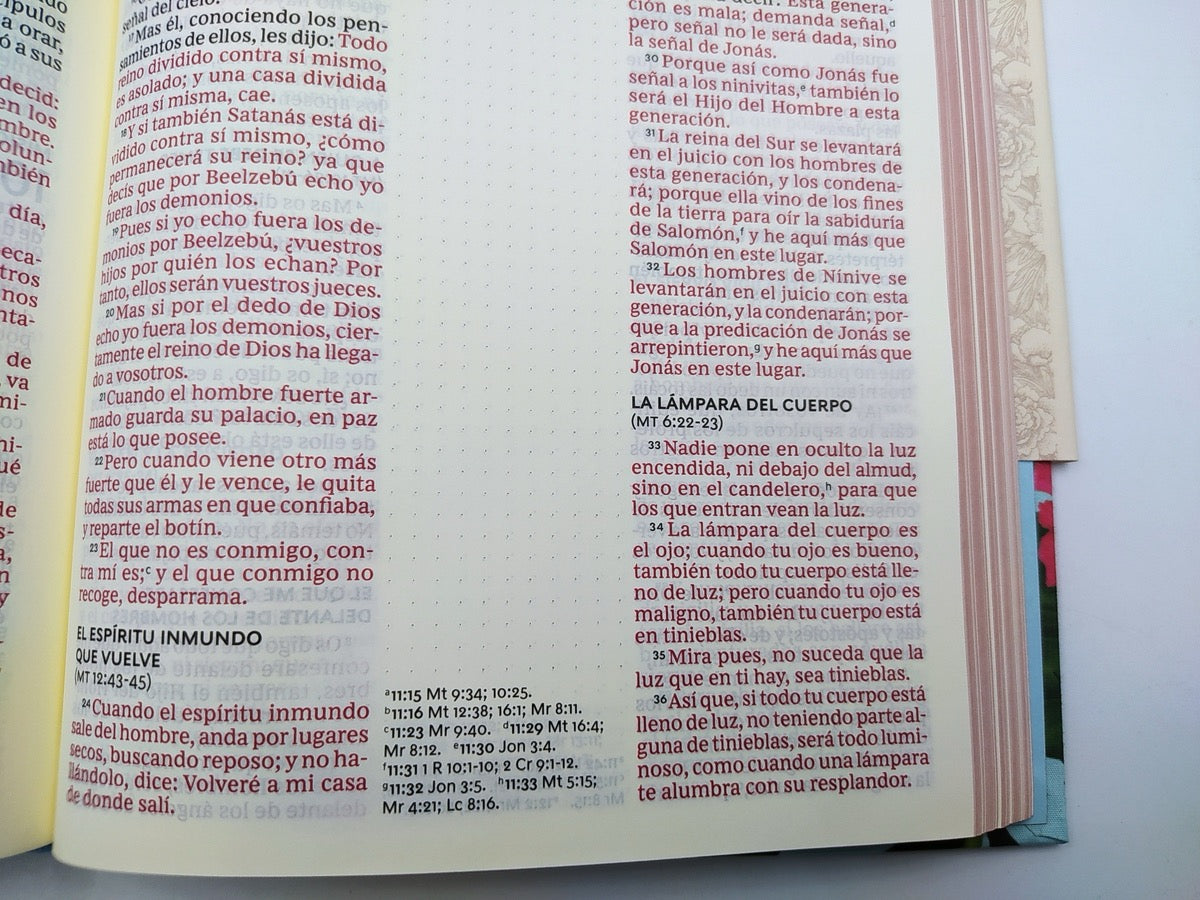 ípulos
a orar,
ó a sus
decid:
en los
mbre.
olun-
mbién
día,
eca-
tros
nos
nta-
de
va
mi-
hi-
ué
le
s-
a,
n
y
señal del cielo.
17Mas él, conociendo los pen-
samientos de ellos, les dijo: Todo
reino dividido contra sí mismo,
es asolado; y una casa dividida
contra sí misma, cae.
18Y si también Satanás está di-
vidido contra sí mismo, ¿cómo
permanecerá su reino? ya que
decís que por Beelzebú echo yo
fuera los demonios.
19Pues si yo echo fuera los de-
monios por Beelzebú, ¿vuestros
hijos por quién los echan? Por
tanto, ellos serán vuestros jueces.
20Mas si por el dedo de Dios
echo yo fuera los demonios, cier-
tamente el reino de Dios ha llega-
do a vosotros.
21Cuando el hombre fuerte ar-
mado guarda su palacio, en paz
está lo que posee.
22Pero cuando viene otro más
fuerte que él y le vence, le quita
todas sus armas en que confiaba,
y reparte el botín.
23El que no es conmigo, con-
tra mí es;c y el que conmigo no
recoge, desparrama.
EL ESPÍRITU INMUNDO
QUE VUELVE
(MT 12:43-45)
24Cuando el espíritu inmundo
sale del hombre, anda por lugares
secos, buscando reposo; y no ha-
llándolo, dice: Volveré a mi casa
de donde salí.
a11:15 Mt 9:34; 10:25.
b11:16 Mt 12:38; 16:1; Mr 8:11.
c11:23 Mr 9:40. d11:29 Mt 16:4;
Mr 8:12. e11:30 Jon 3:4.
f11:31 1 R 10:1-10; 2 Cr 9:1-12.
g11:32 Jon 3:5. h11:33 Mt 5:15;
Mr 4:21; Lc 8:16.
decir: Esta genera-
ción es mala; demanda señal,d
pero señal no le será dada, sino
la señal de Jonás.
30Porque así como Jonás fue
señal a los ninivitas,e también lo
será el Hijo del Hombre a esta
generación.
31La reina del Sur se levantará
en el juicio con los hombres de
esta generación, y los condena-
rá; porque ella vino de los fines
de la tierra para oír la sabiduría
de Salomón,f y he aquí más que
Salomón en este lugar.
32Los hombres de Nínive se
levantarán en el juicio con esta
generación, y la condenarán; por-
que a la predicación de Jonás se
arrepintieron,g y he aquí más que
Jonás en este lugar.
LA LÁMPARA DEL CUERPO
(MT 6:22-23)
33Nadie pone en oculto la luz
encendida, ni debajo del almud,
sino en el candelero,h para que
los que entran vean la luz.
34La lámpara del cuerpo es
el ojo; cuando tu ojo es bueno,
también todo tu cuerpo está lle-
no de luz; pero cuando tu ojo es
maligno, también tu cuerpo está
en tinieblas.
35Mira pues, no suceda que la
luz que en ti hay, sea tinieblas.
36Así que, si todo tu cuerpo está
lleno de luz, no teniendo parte al-
guna de tinieblas, será todo lumi-
noso, como cuando una lámpara
te alumbra con su resplandor.